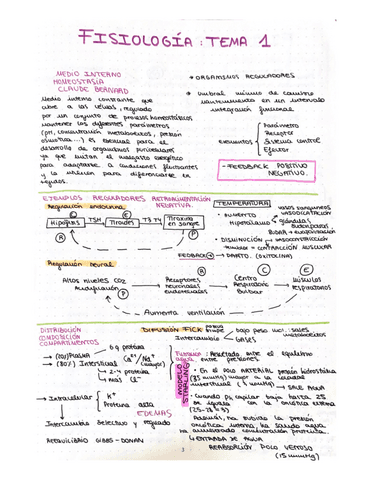 FISIOLOGÍA: TEMA 1
MEDIO INTERNO
HOMEOSTASIA
CLAUDE BERNARD
Medio interno constante que
rodea a las células, regulado
por un conjunto de procesos homeostáticos
Mantener los diferentes parámetros
(pH, concentración metabolitos, presión
osmótica...) es esencial para el
desarrollo de organismos pluricelulares
ya que evitan el energético
para adaptarse a condiciones fluctuantes
y la utilizan para diferenciarse en
tejidos.
→ ORGANISMOS REGULADORES
Umbral mínimo de cambio
mantenimiento en un intervalo
integración funcional
elementos
Parámetro
Receptor
Sistema control
Efector
- FEEDBACK POSITIVO
NEGATIVO.
EJEMPLOS REGULADORES RETROALIMENTACIÓN
NEGATIVA.
Regulación endocrina
C
E
Hipófisis
TSH
Tiroides
T3 T4
Tiroxina
en sangre
R
P
TEMPERATURA
• AUMENTO
Hipotálamo
vasos sanguíneos
VASODILATACIÓN
glándulas
sudoríparas
SUDOR → evaporación
• DISMINUCIÓN → VASOCONSTRICCIÓN
→ CONTRACCIÓN MUSCULAR
FEEDBACK + → PARTO. (OXITOCINA)
Regulación neural
R
C
E
Altos niveles CO2
Acidificación
P
Receptores
neuronales
endoteriales
Centro
Respiratorio
Bulbar
Músculos
Respiratorios
Aumenta ventilación
DISTRIBUCIÓN
COMPOSICIÓN
COMPARTIMENTOS
→ (20%) PLASMA
→ (80%) Intersticial
6 g proteína
Ca2+/Na+
(mayor)
2-4 proteína
Na+ Cl-
→ Intracelular
K+
Proteína alta
EDEMAS
Intercambio selectivo y regulado
↓
EQUILIBRIO GIBBS-DONNAN
DIFUSIÓN FICK
Intercambio
bajo peso mol: sales
metabolitos
→ GASES
Resultado entre el equilibrio
agua entre presiones
MODELO
STARLING
• EN EL POLO ARTERIAL presión hidrostática
(35 mmHg) mayor a la
intersticial
→ SALE AGUA
• Cuando pc capilar baja hasta 25
se iguala con la oncótica externa
(25-28
Además, ha subido la presión
oncótica interna, ha salido agua
ha aumentado concentración proteína.
↳ ENTRADA DE AGUA
REABSORCIÓN POLO VENOSO
(15 mmHg)